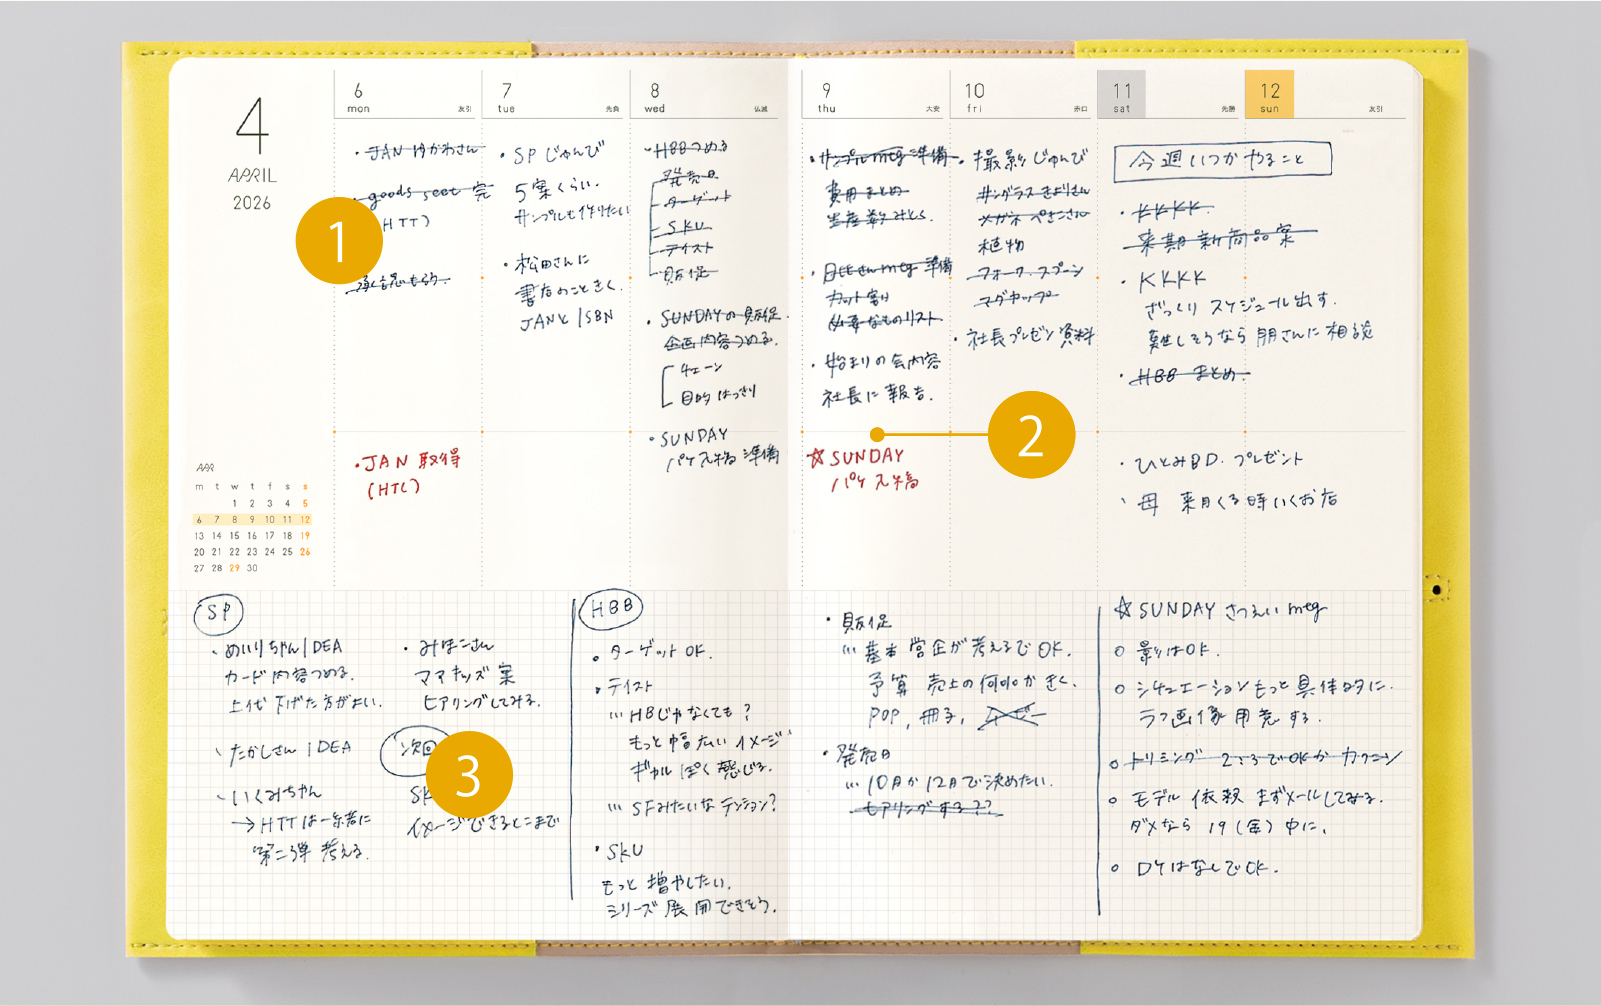 4
APRIL
2026
6
mon
友引
7
tue
先負
8
wed
仏滅
9
thu
大安
10
fri
赤口
11
sat
先勝
12
sun
友引
・JAN ゆかわさん
・goods seet 完
(HTT)
承認もらう.
・JAN 取得
(HTC)
・SPじゅんび
5案くらい.
サンプルも作りたい
・松田さんに
書店のこときく.
JANと ISBN
・HBBつめる
発売日
ターゲット
SKU
テイスト
販促
・SUNDAYの販促
企画内容つめる.
チェーン
目的はっきり
・SUNDAY
パケ入稿準備
・サンプルmtg準備
費用まとめ
生産数みとく.
mtg 準備
カット割
必要なものリスト
・始まりの会内容
社長に報告.
☆SUNDAY
パケ入稿
・撮影じゅんび
サングラス きよりさん
メガネ ペきこさん
植物
フォーク.スプーン
マグカップ
・社長プレゼン資料
今週いつかやること
・KKKK.
来期新商品案
・KKKK
ざっくり スケジュール出す.
難しそうなら 朋さんに相談
・HBB まとめ.
・ひとみBD. プレゼント
・母 来月くる時いくお店
APR
m t w t f s s
1 2 3 4 5
6 7 8 9 10 11 12
13 14 15 16 17 18 19
20 21 22 23 24 25 26
27 28 29 30
1
2
3
SP
・めいりちゃんIDEA
カード内容つめる.
上代下げた方がよい.
・たかしさん IDEA
・いくみちゃん
→HTTは一緒に
第二弾考える.
・みほこさん
ママキッズ案
ヒアリングしてみる.
次回
SK
イメージできるとこまで
HBB
・ターゲットOK.
・テイスト
…HBじゃなくても?
もっと幅広いイメージ
ギャルぽく感じる.
…SFみたいなテンション?
・SKU
もっと増やしたい.
シリーズ展開できそう.
・販促
…基本営企が考えるでOK.
予算 売上の何%かきく.
POP, 冊子,
・発売日
…10月か12月で決めたい.
ヒアリングする??
☆SUNDAY さつえいmtg
○ 影はOK.
○ シチュエーションもっと具体的に.
ラフ画像用意する.
○ トリミング 2:3でOKか カクニン
○ モデル依頼 まずメールしてみる.
ダメなら 19(金)中に.
○ DYはなしでOK.